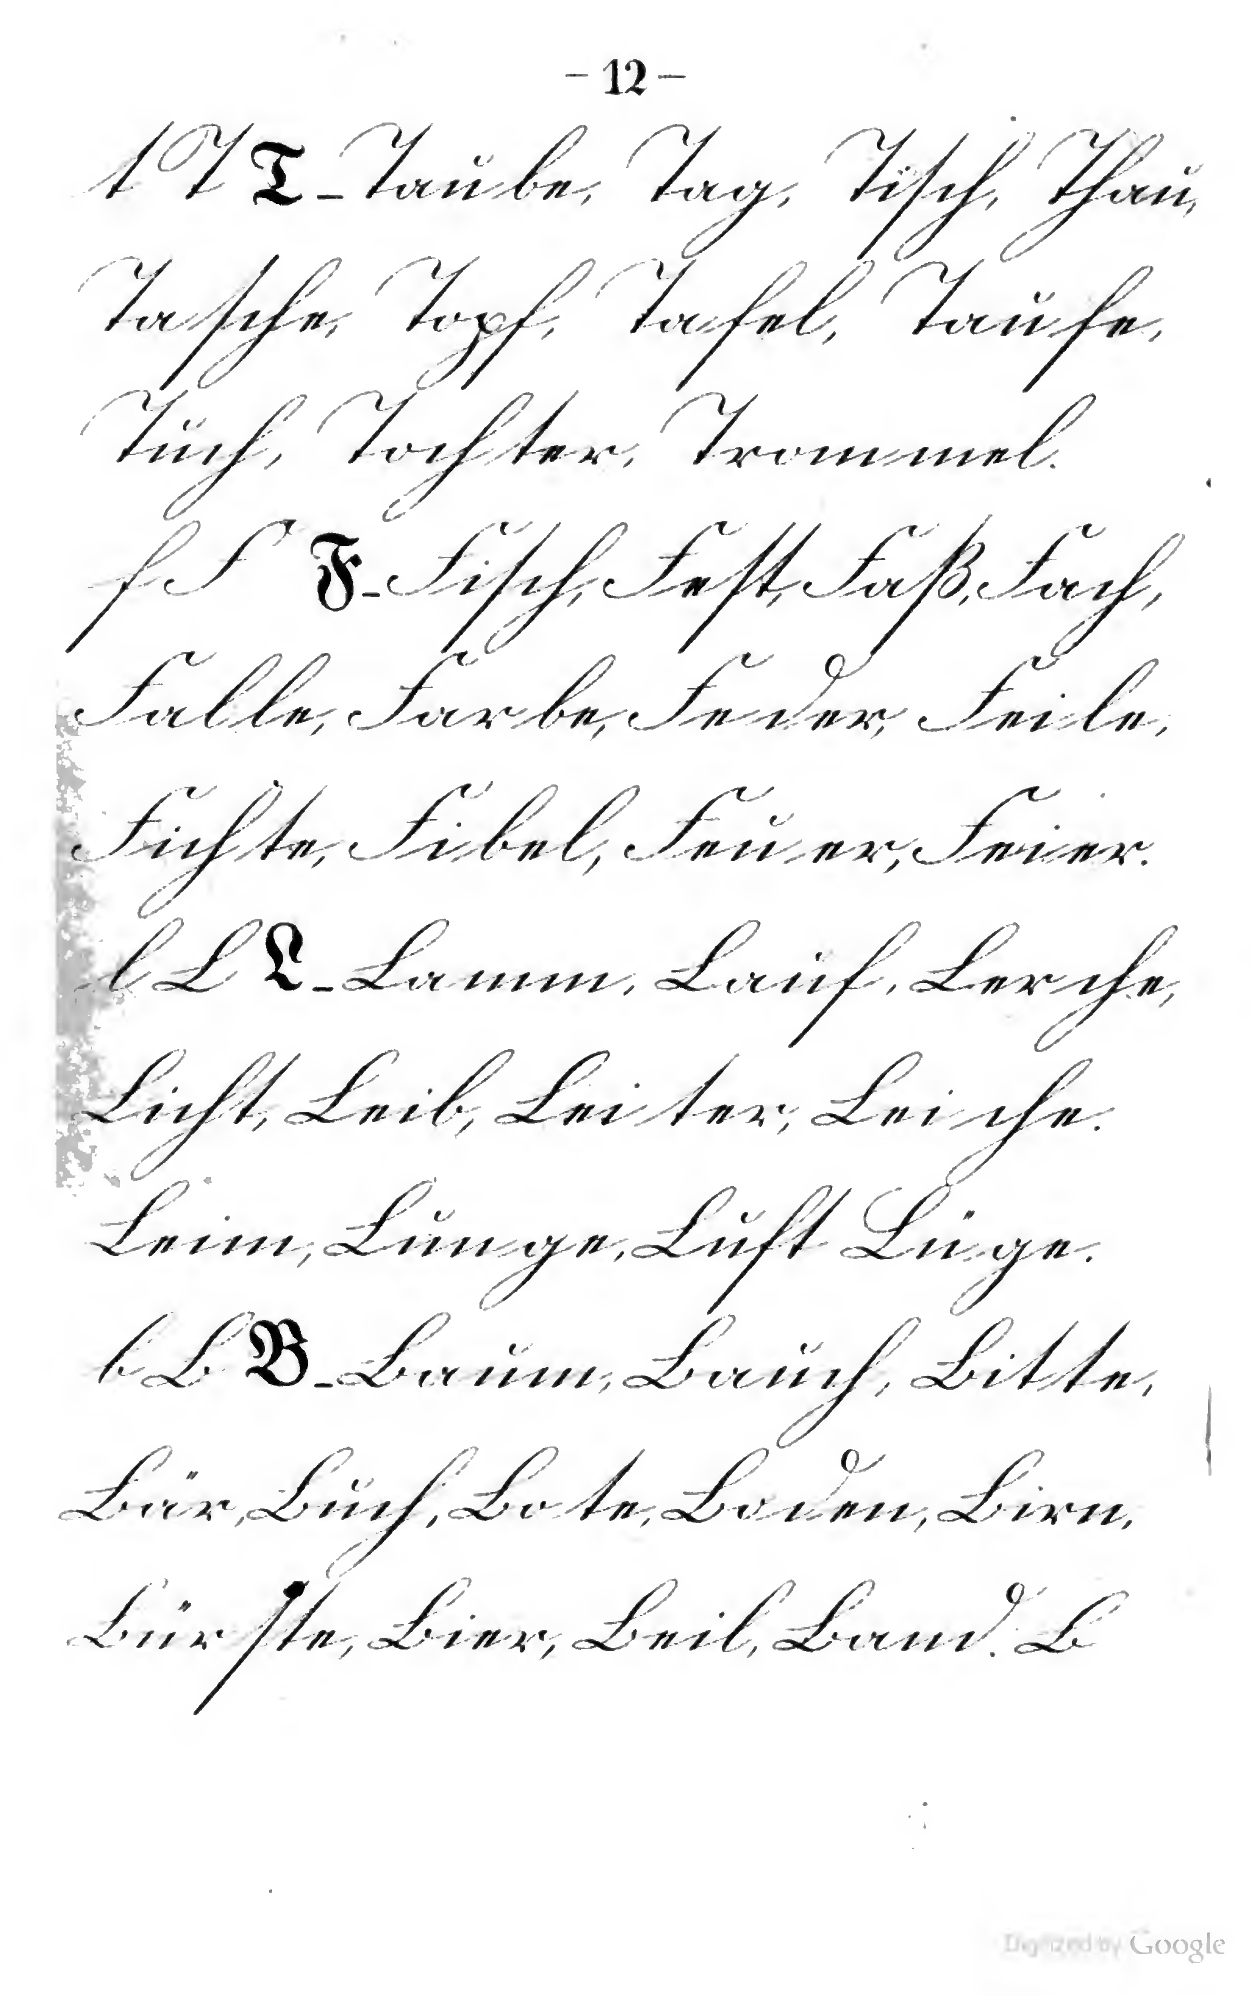 – 12 –
t T T – Taube, Tag, Tisch, Thau,
Tasche, Topf, Tafel, Taufe,
Tuch, Tochter, Trommel.
f F F – Fisch, Fest, Faß, Fach,
Falle, Farbe, Feder, Feile,
Fichte, Fibel, Feuer, Feier.
l L L – Lamm, Lauf, Lerche,
Licht, Leib, Leiter, Leiche.
Leim, Lunge, Luft Lüge.
b B B – Baum, Bauch, Bitte,
Bär, Buch, Bote, Boden, Birn,
Bürste, Bier, Beil, Band. B
Digitized by Google